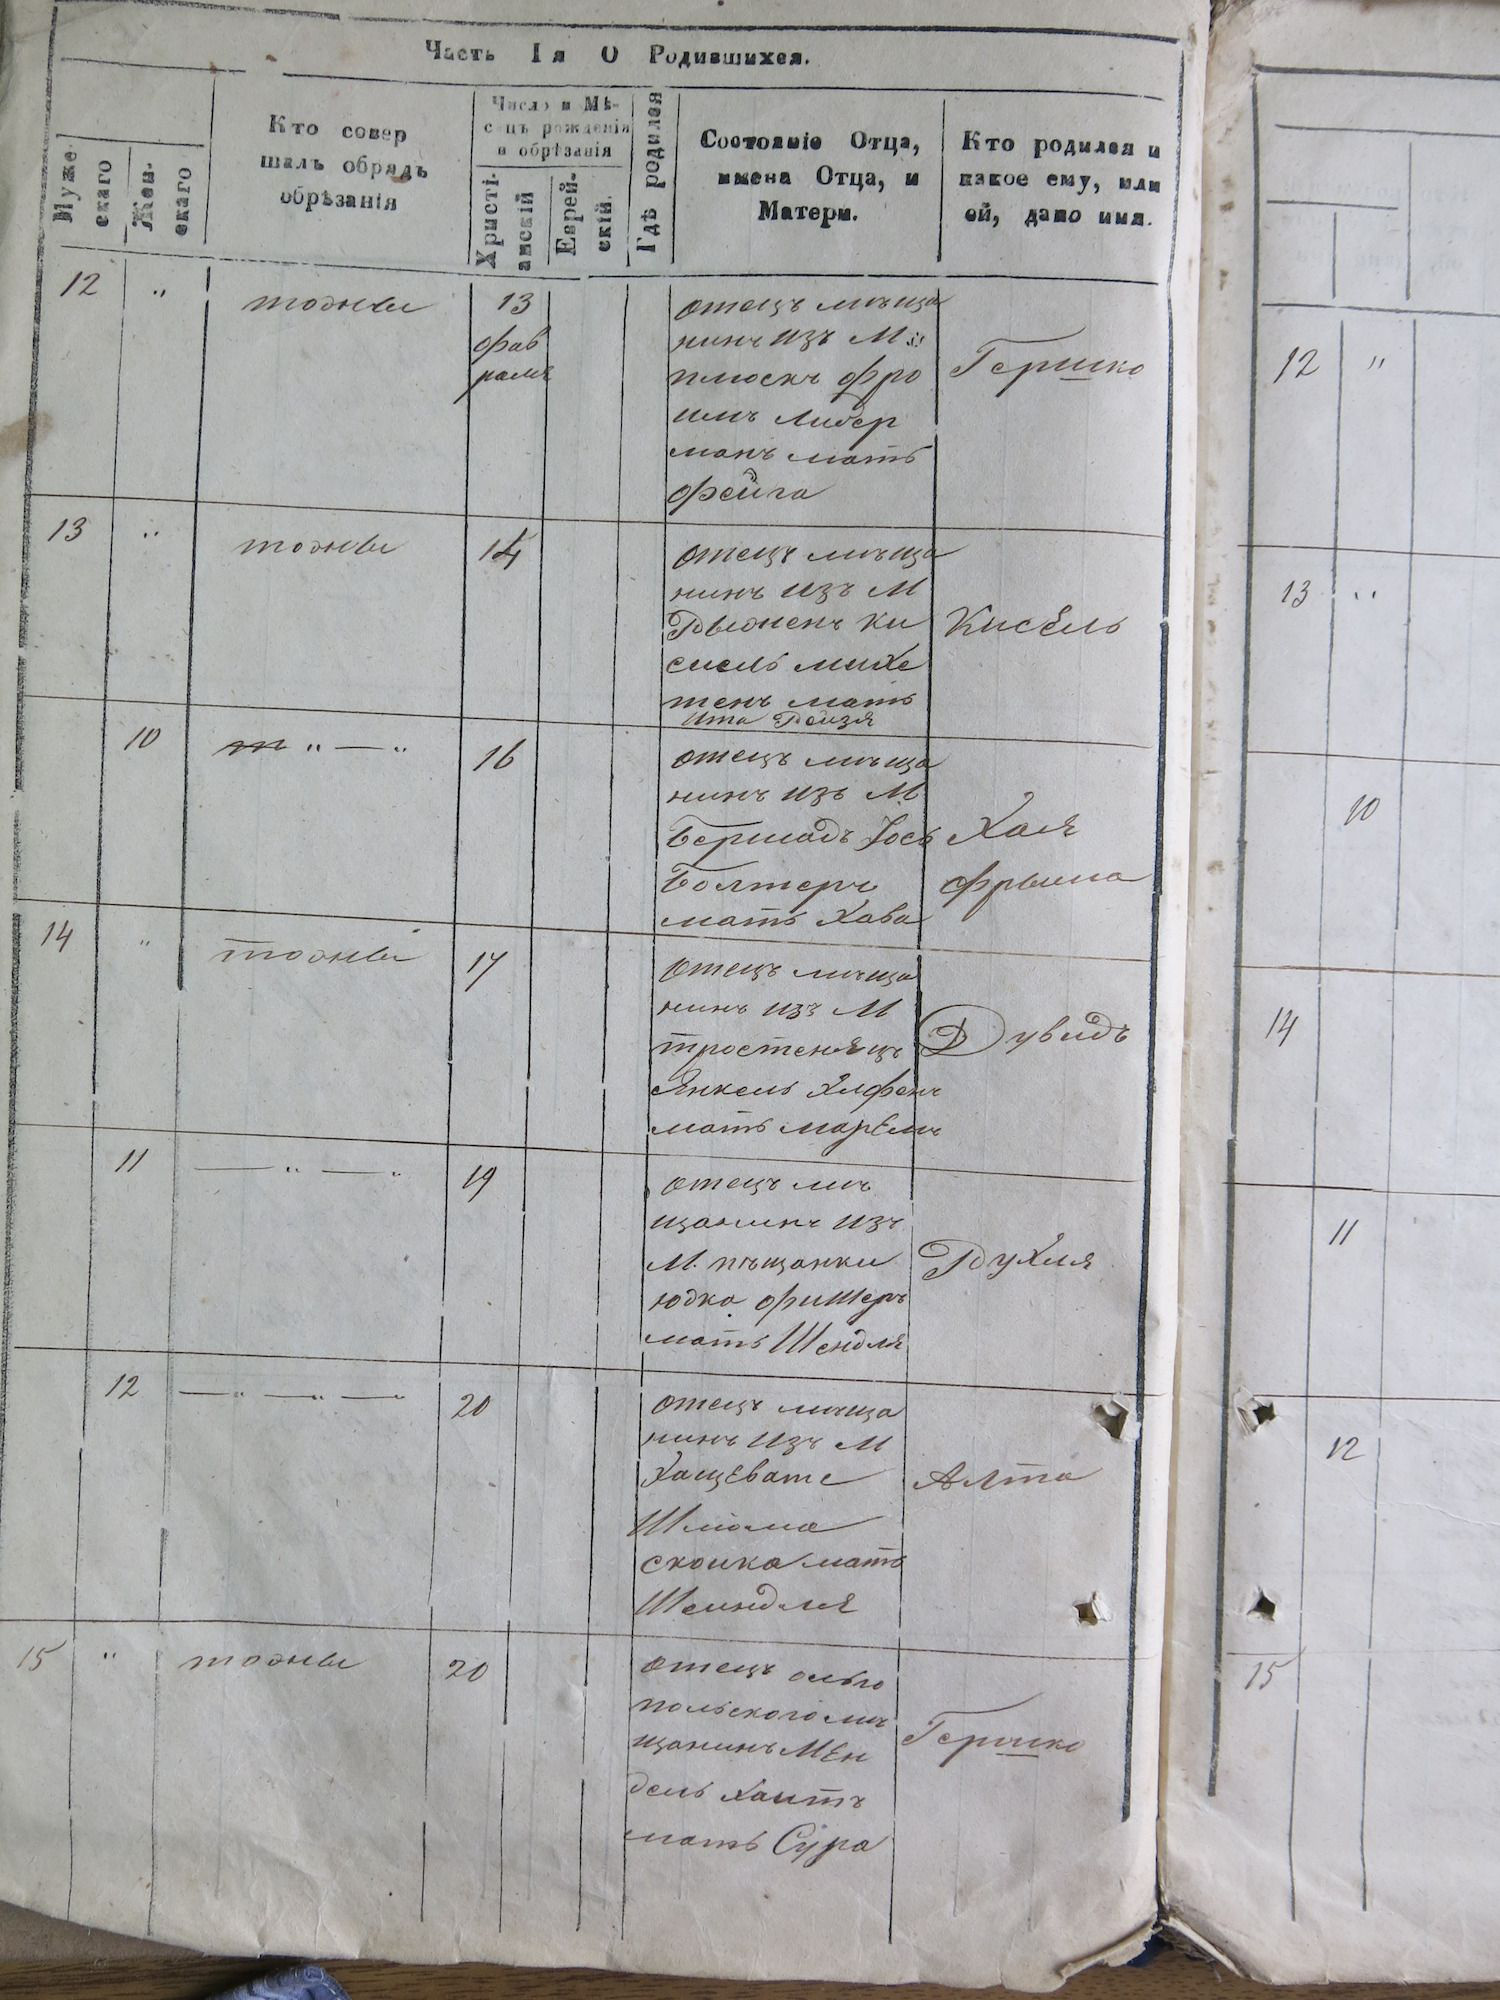 Часть Iя О Родившихся.
Муже-
скаго
Жен-
скаго
Кто совер
шалъ обрядъ
обрѣзанія
Число и Мѣ-
сяцъ рожденія
и обрѣзанія
Христі-
анскій
Еврей-
скій.
Гдѣ родился
Состояніе Отца,
имена Отца, и
Матери.
Кто родился и
какое ему, или
ей, дано имя.
12 " 13
фев
раля
отецъ мѣща
нинъ изъ М
плоскъ Фро
имъ Либер
манъ мать
Фейга
Гершко
13 " 14
отецъ мѣща
нинъ изъ М
Ки
сиель
мать
Ита Рейзя
Кисель
10 " — " 16
отецъ мѣща
нинъ изъ М
Бершадь Іось
Болтеръ
мать Хава
Хая
Фрыма
14 " 17
отецъ мѣща
нинъ изъ М
тростенецъ
Янкель
мать
Дувидъ
11 — " — " 19
отецъ мѣ
щанинъ изъ
М. пѣщанки
Юдка Фишеръ
мать Шендля
Рухля
12 — " — " — " 20
отецъ мѣща
нинъ изъ М
Хащевате
Шлиома
мать
Шеиндля
Алта
15 " 20
отецъ ольго
польского мѣ
щанинъ Мен
дель Хаитъ
мать Сура
Гершко
12 "
13 "
10
14
11
12
15